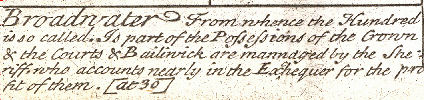 Broadwater From whence the Hundred
is so called. Is part of the Possessions of the Crown
& the Courts & Bailiwick are mannaged by the She-
riff who accounts nearly in the Exhequer for the pro
fit of them. [at 30]